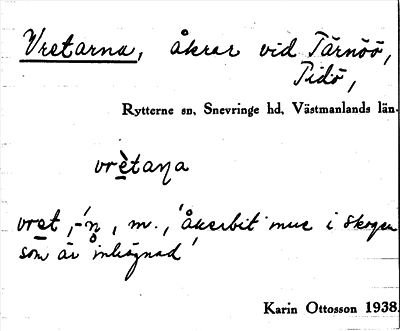 Vretarna, åkrar vid Tärnöö,
Tidö,
Rytterne sn, Snevringe hd, Västmanlands län.
vrètaṇa
vret, -´n, m., 'åkerbit inne i skogen
som är inhägnad'
Karin Ottosson 1938.